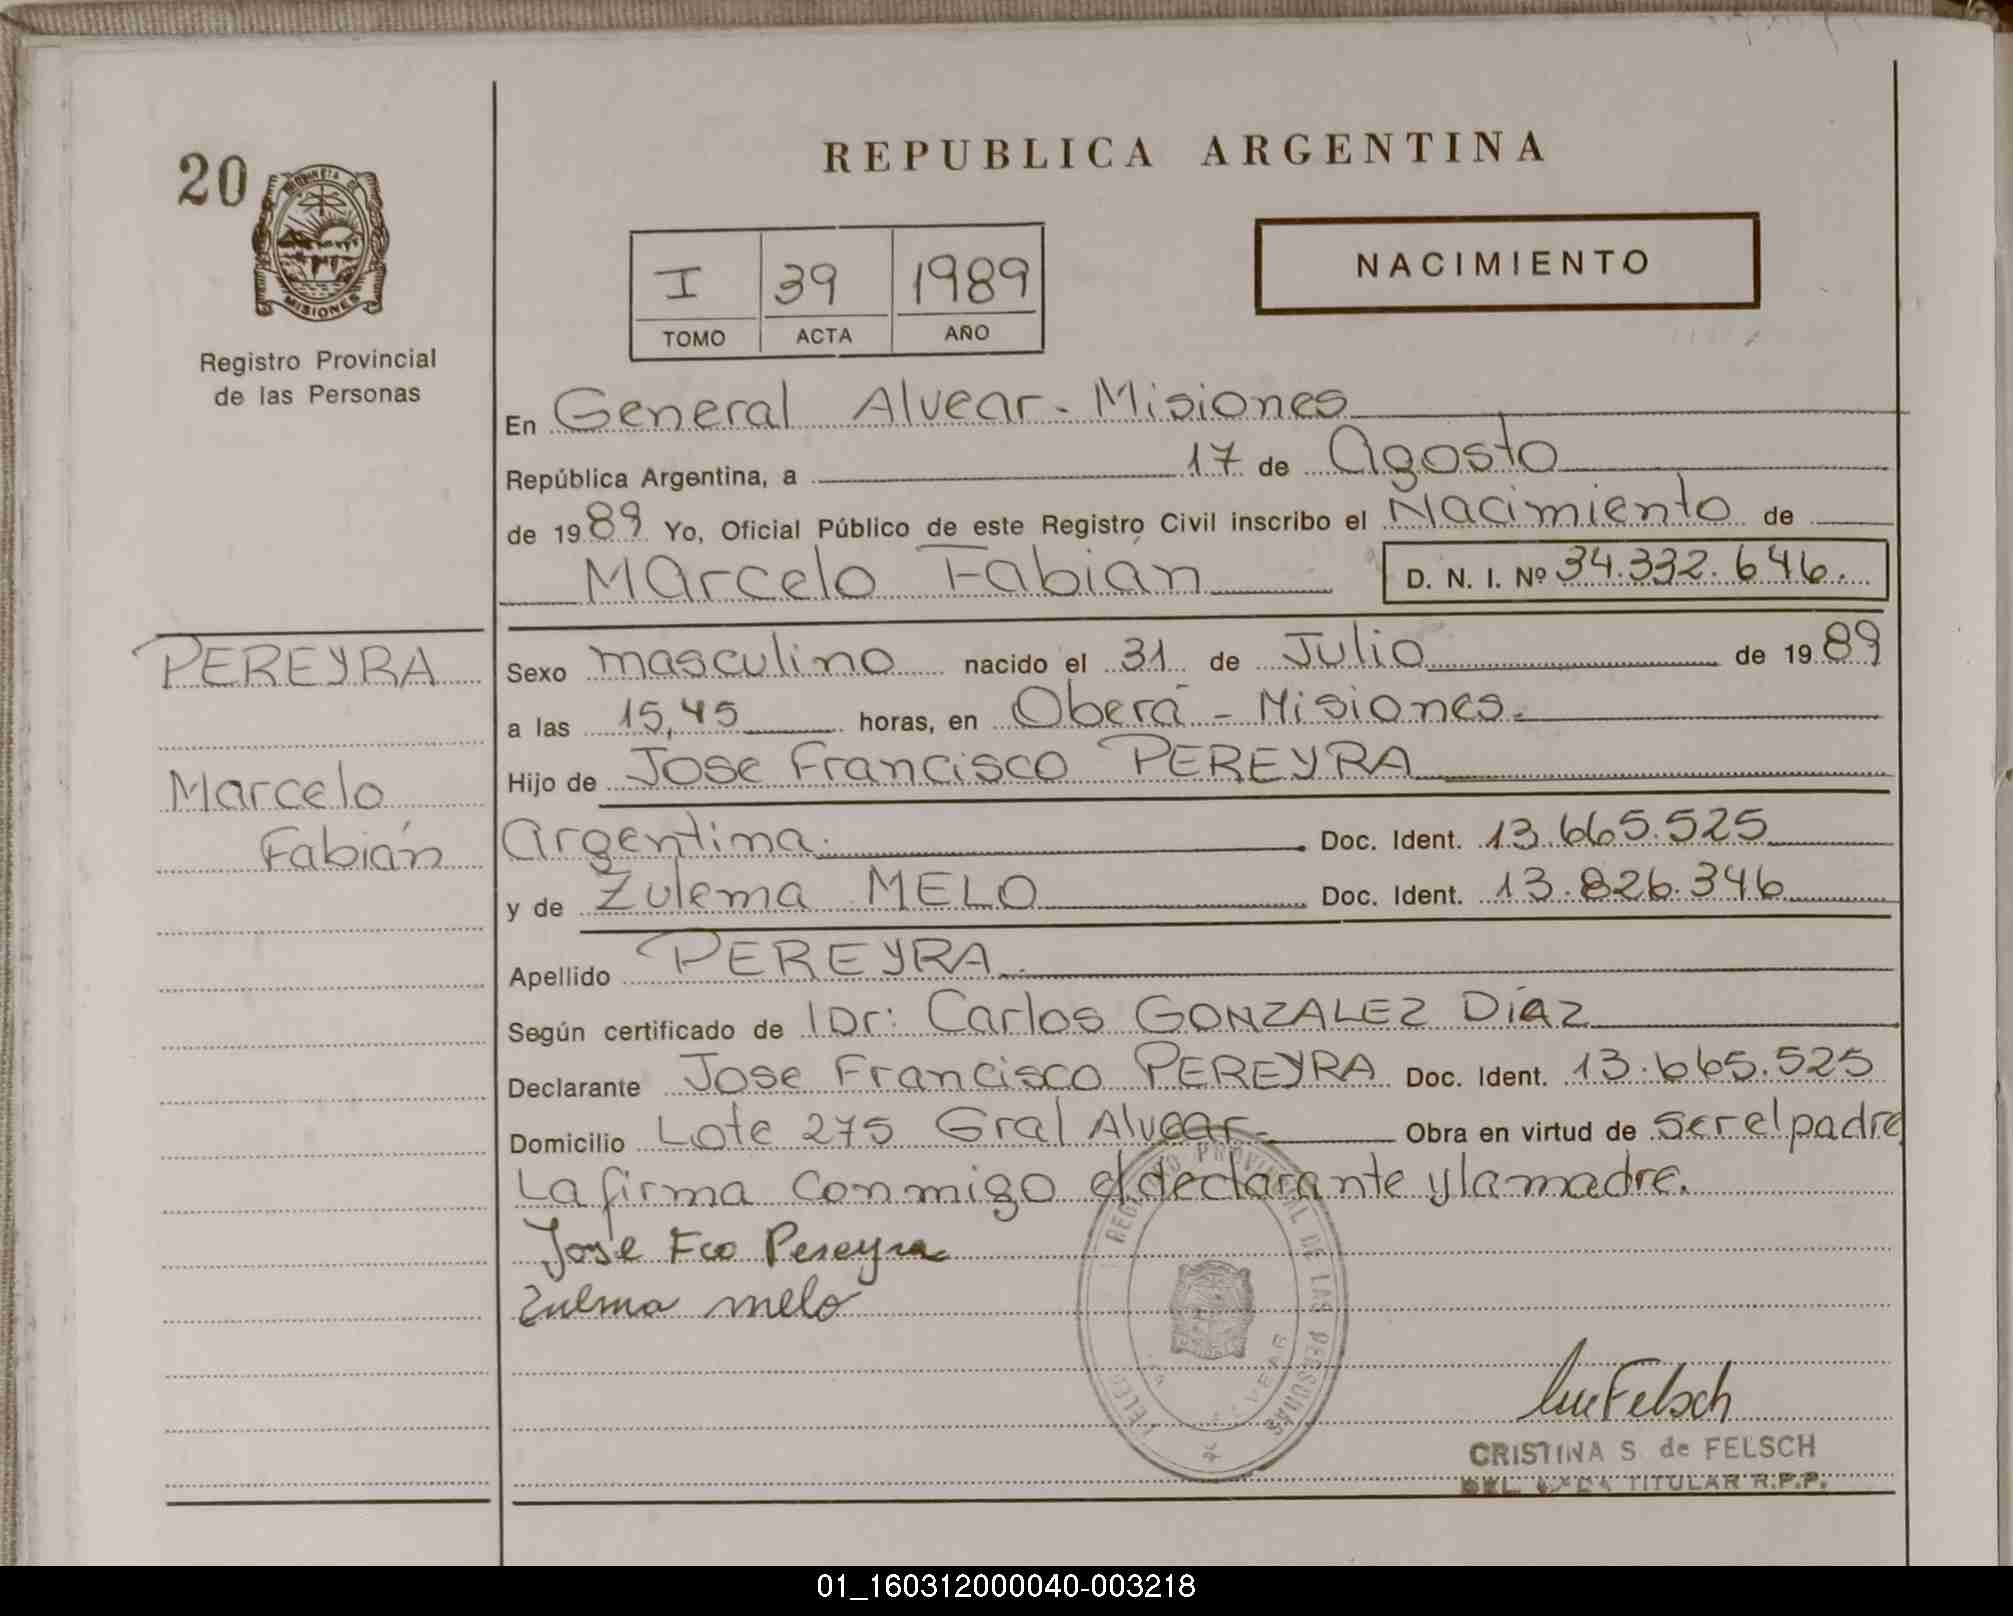 20
PROVINCIA DE
MISIONES
Registro Provincial
de las Personas
REPUBLICA ARGENTINA
I 39 1989
TOMO ACTA AÑO
NACIMIENTO
En General Alvear - Misiones
República Argentina, a 17 de Agosto
de 1989 Yo, Oficial Público de este Registro Civil inscribo el Nacimiento de
Marcelo Fabián D. N. I. Nº 34.332.646.
PEREYRA
Marcelo
Fabián
Sexo masculino nacido el 31 de Julio de 1989
a las 15,45 horas, en Oberá - Misiones.
Hijo de Jose Francisco PEREYRA
Argentina. Doc. Ident. 13.665.525
y de Zulema MELO Doc. Ident. 13.826.346
Apellido PEREYRA
Según certificado de Dr: Carlos GONZALEZ DíAZ
Declarante Jose Francisco PEREYRA Doc. Ident. 13.665.525
Domicilio Lote 275 Gral Alvear- Obra en virtud de ser el padre
La firma conmigo el declarante y la madre.
José Fco Pereyra
Zulma melo
REGISTRO PROVINCIAL DE LAS PERSONAS
Felsch
CRISTINA S. de FELSCH
TITULAR R.P.P.
01_160312000040-003218